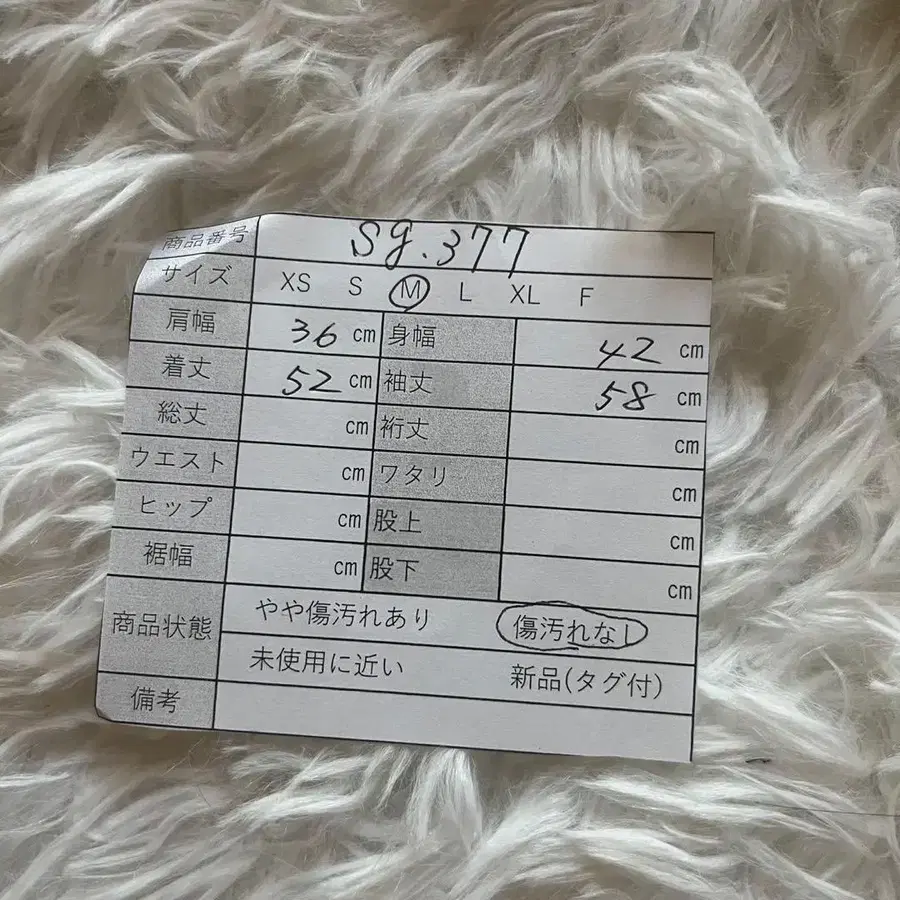 商品番号 sg.377
サイズ XS S M L XL F
肩幅 36 cm 身幅 42 cm
着丈 52 cm 袖丈 58 cm
総丈 cm 裄丈 cm
ウエスト cm ワタリ cm
ヒップ cm 股上 cm
裾幅 cm 股下 cm
商品状態 やや傷汚れあり 傷汚れなし
未使用に近い 新品(タグ付)
備考